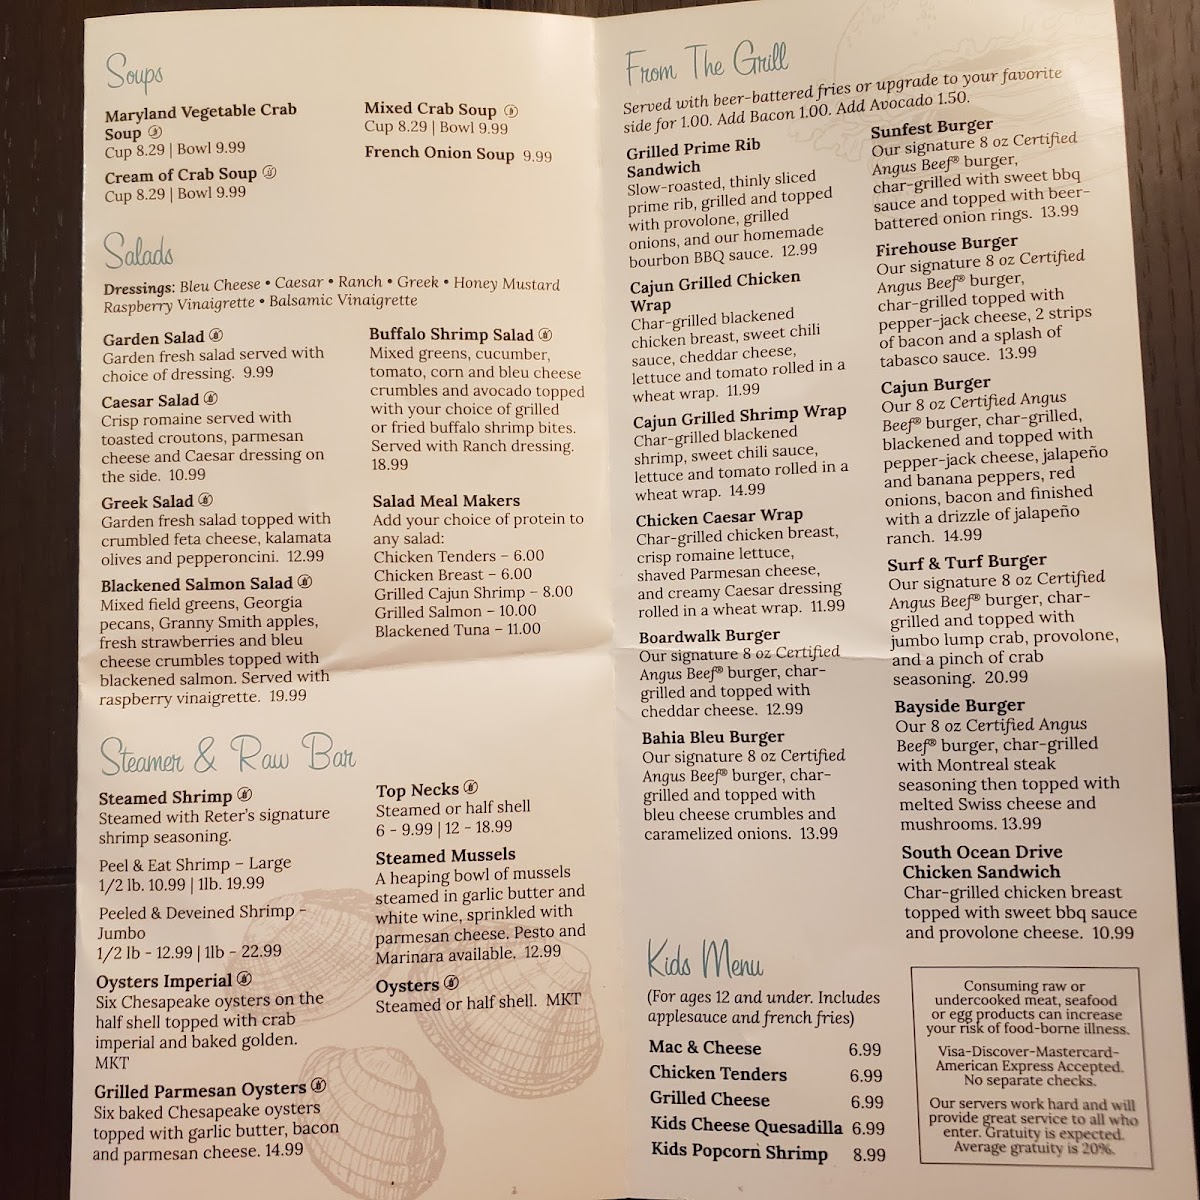 Soups
Maryland Vegetable Crab
Soup
Cup 8.29 | Bowl 9.99
Cream of Crab Soup
Cup 8.29 | Bowl 9.99
Mixed Crab Soup
Cup 8.29 | Bowl 9.99
French Onion Soup 9.99
Salads
Dressings: Bleu Cheese • Caesar • Ranch • Greek • Honey Mustard
Raspberry Vinaigrette • Balsamic Vinaigrette
Garden Salad
Garden fresh salad served with
choice of dressing. 9.99
Caesar Salad
Crisp romaine served with
toasted croutons, parmesan
cheese and Caesar dressing on
the side. 10.99
Greek Salad
Garden fresh salad topped with
crumbled feta cheese, kalamata
olives and pepperoncini. 12.99
Blackened Salmon Salad
Mixed field greens, Georgia
pecans, Granny Smith apples,
fresh strawberries and bleu
cheese crumbles topped with
blackened salmon. Served with
raspberry vinaigrette. 19.99
Buffalo Shrimp Salad
Mixed greens, cucumber,
tomato, corn and bleu cheese
crumbles and avocado topped
with your choice of grilled
or fried buffalo shrimp bites.
Served with Ranch dressing.
18.99
Salad Meal Makers
Add your choice of protein to
any salad:
Chicken Tenders – 6.00
Chicken Breast – 6.00
Grilled Cajun Shrimp – 8.00
Grilled Salmon – 10.00
Blackened Tuna – 11.00
Steamer & Raw Bar
Steamed Shrimp
Steamed with Reter's signature
shrimp seasoning.
Peel & Eat Shrimp – Large
1/2 lb. 10.99 | 1lb. 19.99
Peeled & Deveined Shrimp -
Jumbo
1/2 lb - 12.99 | 1lb - 22.99
Oysters Imperial
Six Chesapeake oysters on the
half shell topped with crab
imperial and baked golden.
MKT
Grilled Parmesan Oysters
Six baked Chesapeake oysters
topped with garlic butter, bacon
and parmesan cheese. 14.99
Top Necks
Steamed or half shell
6 - 9.99 | 12 - 18.99
Steamed Mussels
A heaping bowl of mussels
steamed in garlic butter and
white wine, sprinkled with
parmesan cheese. Pesto and
Marinara available. 12.99
Oysters
Steamed or half shell. MKT
From The Grill
Served with beer-battered fries or upgrade to your favorite
side for 1.00. Add Bacon 1.00. Add Avocado 1.50.
Grilled Prime Rib
Sandwich
Slow-roasted, thinly sliced
prime rib, grilled and topped
with provolone, grilled
onions, and our homemade
bourbon BBQ sauce. 12.99
Cajun Grilled Chicken
Wrap
Char-grilled blackened
chicken breast, sweet chili
sauce, cheddar cheese,
lettuce and tomato rolled in a
wheat wrap. 11.99
Cajun Grilled Shrimp Wrap
Char-grilled blackened
shrimp, sweet chili sauce,
lettuce and tomato rolled in a
wheat wrap. 14.99
Chicken Caesar Wrap
Char-grilled chicken breast,
crisp romaine lettuce,
shaved Parmesan cheese,
and creamy Caesar dressing
rolled in a wheat wrap. 11.99
Boardwalk Burger
Our signature 8 oz Certified
Angus Beef® burger, char-
grilled and topped with
cheddar cheese. 12.99
Bahia Bleu Burger
Our signature 8 oz Certified
Angus Beef® burger, char-
grilled and topped with
bleu cheese crumbles and
caramelized onions. 13.99
Sunfest Burger
Our signature 8 oz Certified
Angus Beef® burger,
char-grilled with sweet bbq
sauce and topped with beer-
battered onion rings. 13.99
Firehouse Burger
Our signature 8 oz Certified
Angus Beef® burger,
char-grilled topped with
pepper-jack cheese, 2 strips
of bacon and a splash of
tabasco sauce. 13.99
Cajun Burger
Our 8 oz Certified Angus
Beef® burger, char-grilled,
blackened and topped with
pepper-jack cheese, jalapeño
and banana peppers, red
onions, bacon and finished
with a drizzle of jalapeño
ranch. 14.99
Surf & Turf Burger
Our signature 8 oz Certified
Angus Beef® burger, char-
grilled and topped with
jumbo lump crab, provolone,
and a pinch of crab
seasoning. 20.99
Bayside Burger
Our 8 oz Certified Angus
Beef® burger, char-grilled
with Montreal steak
seasoning then topped with
melted Swiss cheese and
mushrooms. 13.99
South Ocean Drive
Chicken Sandwich
Char-grilled chicken breast
topped with sweet bbq sauce
and provolone cheese. 10.99
Kids Menu
(For ages 12 and under. Includes
applesauce and french fries)
Mac & Cheese 6.99
Chicken Tenders 6.99
Grilled Cheese 6.99
Kids Cheese Quesadilla 6.99
Kids Popcorn Shrimp 8.99
Consuming raw or
undercooked meat, seafood
or egg products can increase
your risk of food-borne illness.
Visa-Discover-Mastercard-
American Express Accepted.
No separate checks.
Our servers work hard and will
provide great service to all who
enter. Gratuity is expected.
Average gratuity is 20%.